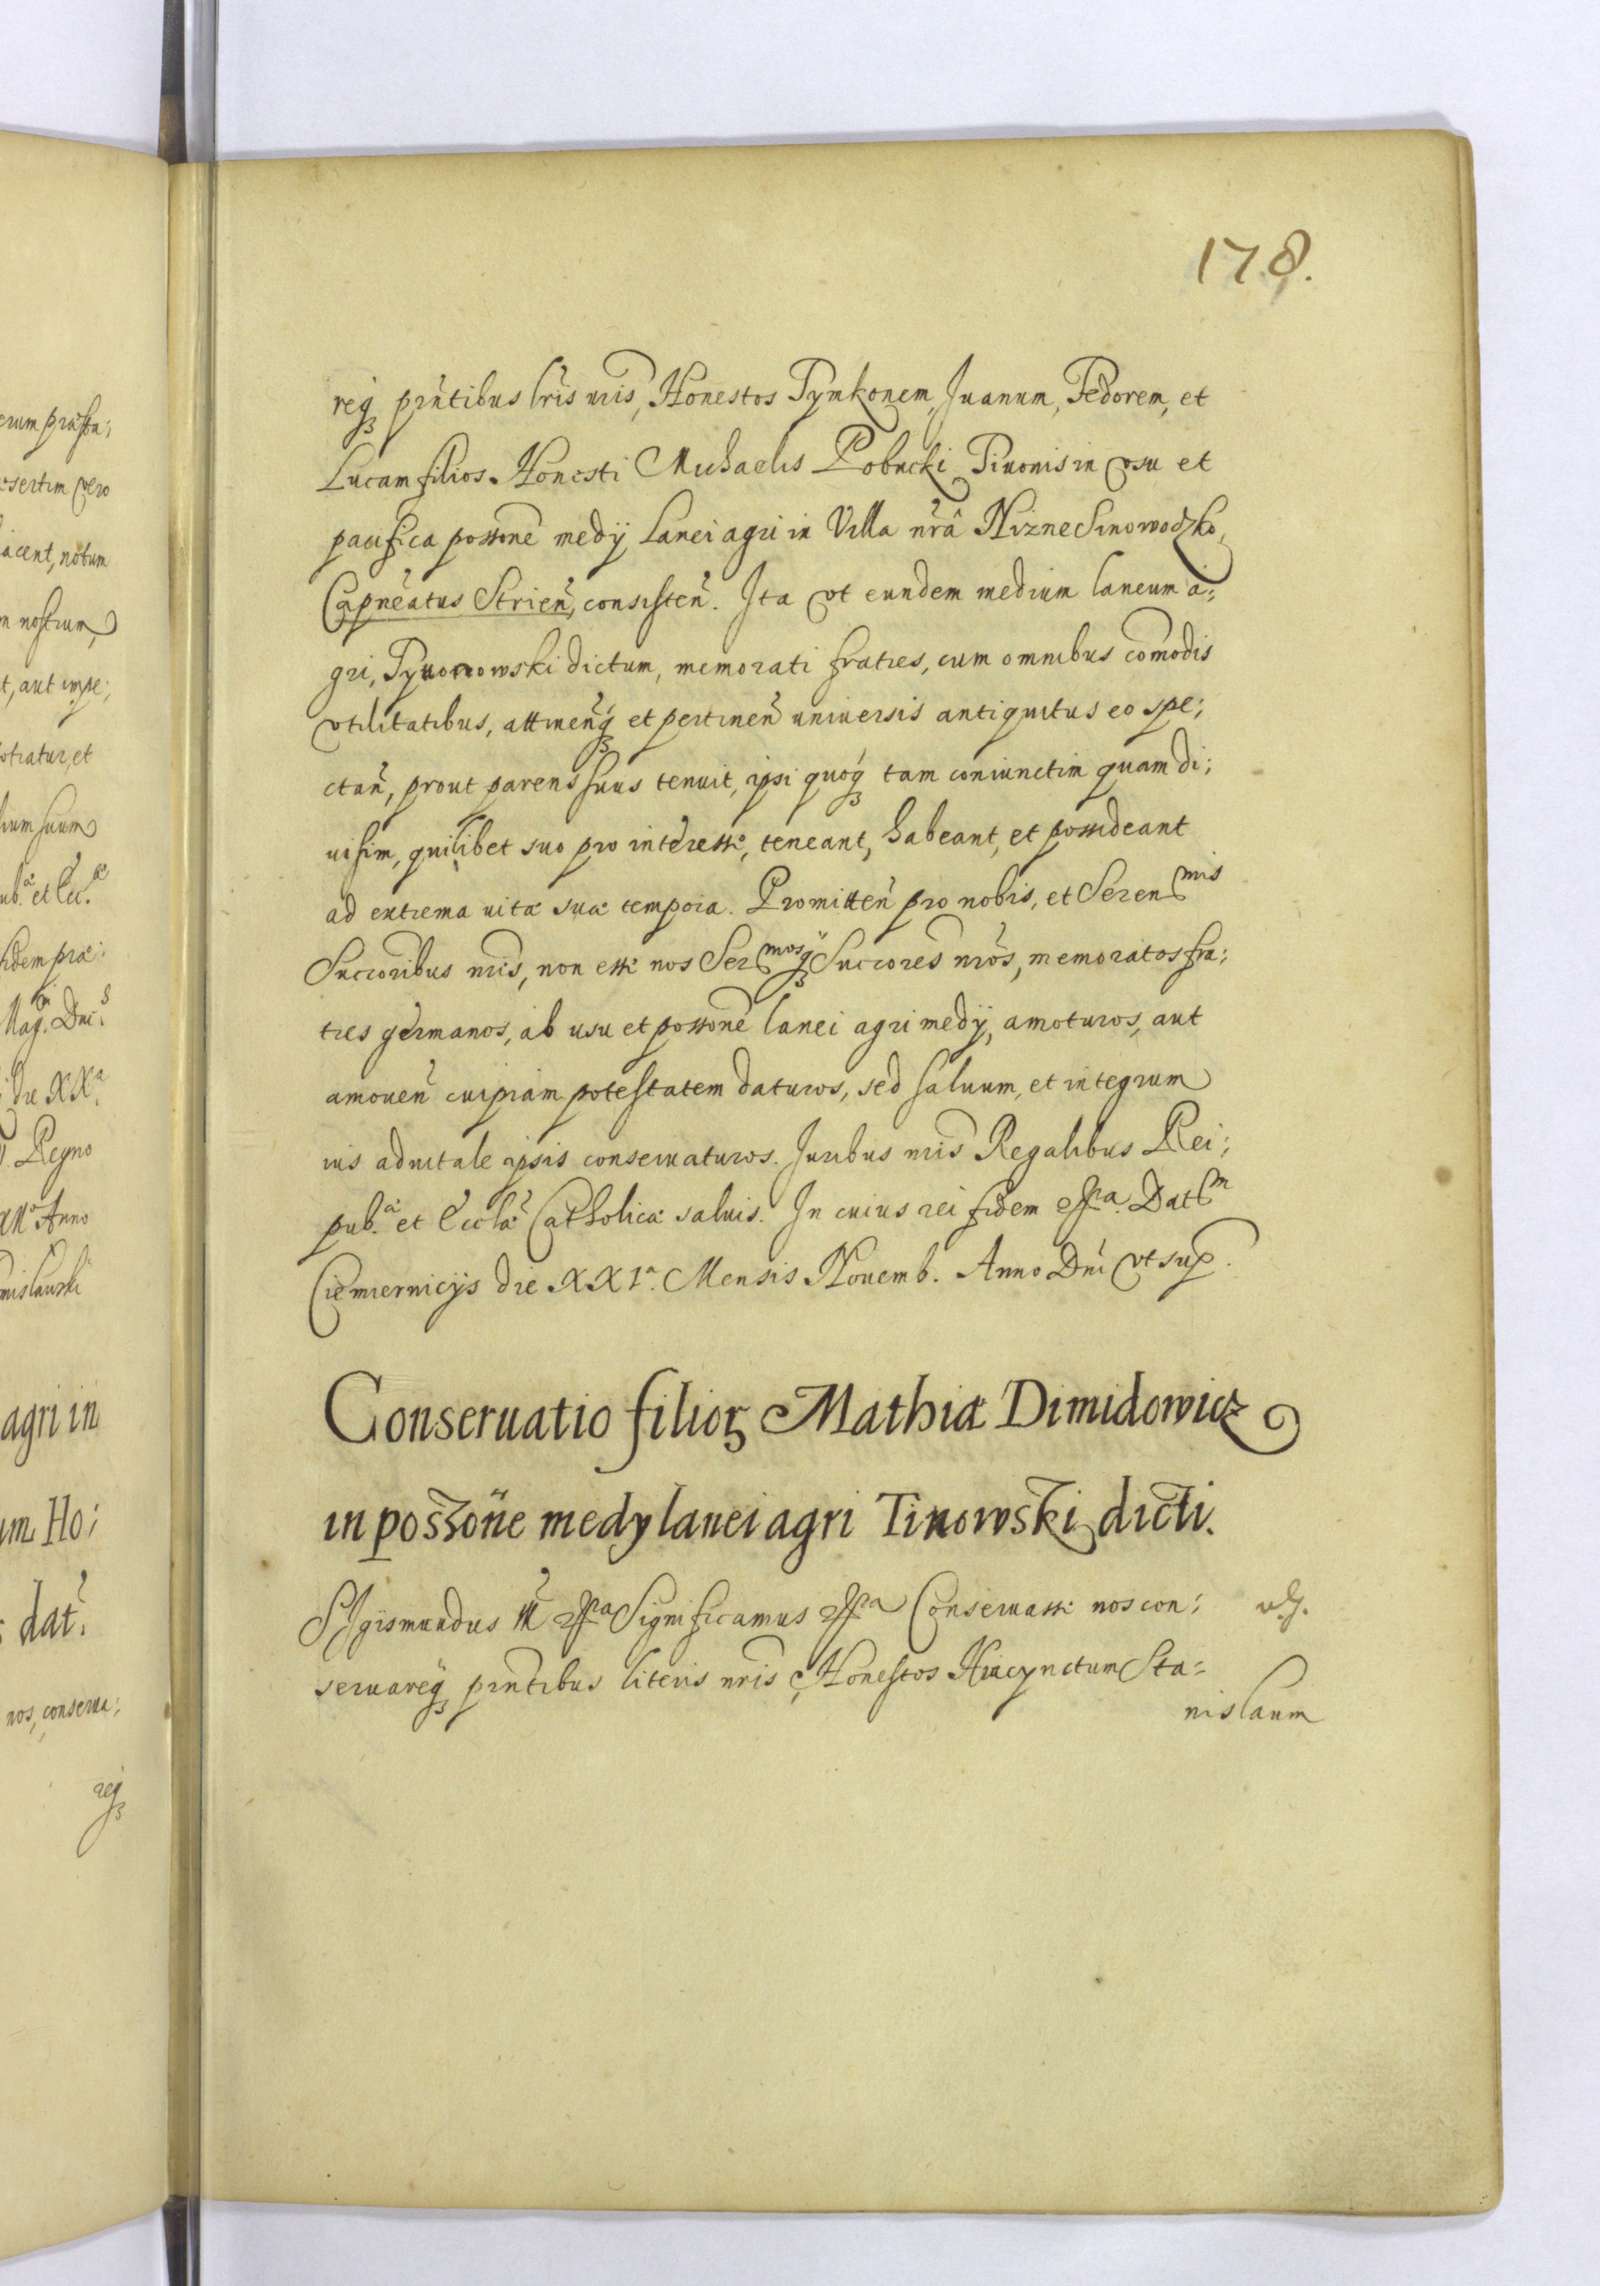 178.
req₃ pñtibus lr̃is nr̃is, Honestos Tymkonem, Juanum, Fedorem, et
Lucam filios Honesti Michaelis Pobucki Tiuonis in vsu et
pacifica possone medÿ lanei agri in Villa nr̃a Nizne Sinowodzko,
Capñeatus Strieñ, consisteñ. Ita vt eundem medium laneum a:
gri, Tyuonowski dictum, memorati fratres, cum omnibus com̃odis
vtilitatibus, attineñq₃ et pertineñ uniuersis antiquitus eo spe:
ctañ, prout parens suus tenuit, ipsi quoq₃ tam coniunctim quam di:
uisim, quilibet suo pro interesse, teneant, habeant, et possideant
ad extrema uitæ suæ tempora. Promitteñ pro nobis, et Seren^mis
Succoribus nr̃is, non esse nos Ser^mosq₃ Succores nr̃os, memoratos fra:
tres germanos, ab usu et possone lanei agri medÿ, amoturos, aut
amoueñ cuipiam potestatem daturos, sed saluum, et integrum
ius aduitale ipsis conseruaturos. Juribus nr̃is Regalibus Rei:
pub.æ et Eccl̃æ Catholicæ saluis. In cuius rei fidem etc^a. Dat^m
Ciemiernicijs die XXI^a. Mensis Nouemb. Anno Dñi vt sup.
Conseruatio filioꝝ Mathiæ Dimidowicz
in possõne medy lanei agri Tinowski dicti.
Sigismundus III etc^a Significamus etc^a Conseruasse nos con:
seruareq₃ pñtibus literis nr̃is Honestos Hiacynctum Sta=
nislaum
erum
esertim vero
iacent, notum
m nostrum
t, aut impe:
et
lium suum
ub.æ et Ecc.æ
fidem præ:
Mag. Dni.
die XX^a.
Regno
Anno
mislauski
agri in
um Ho:
dat.
nos, conserua:
req₃